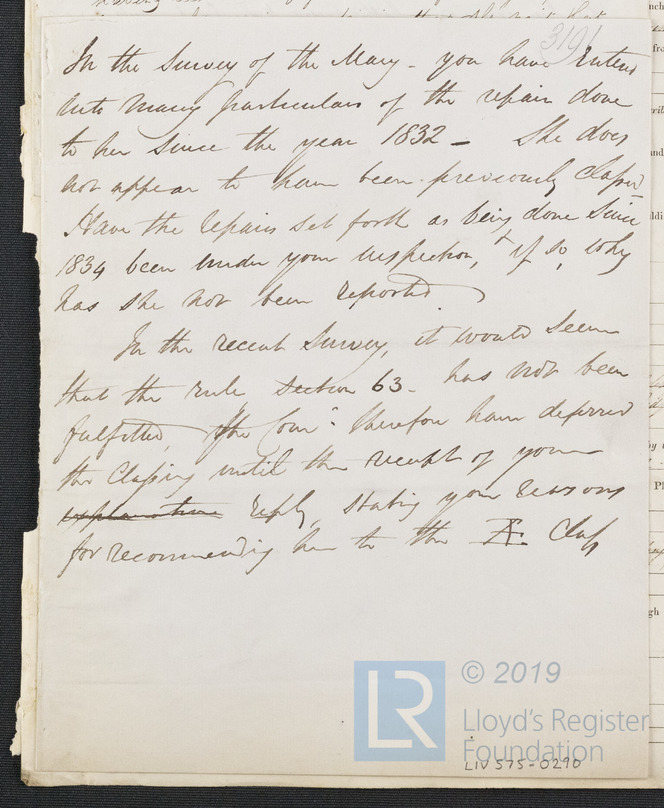 3191
In the Survey of the Mary - you have entered
into many particulars of the repairs done
to her since the year 1832 - She does
not appear to have been previously Classed
Have the repairs set forth as being done Since
1834 been under your inspection, & if so, why
has she not been reported
In the recent Survey, it would seem
that the rule Section 63 - has not been
fulfilled, The Com: therefore have deferred
the Classing until the receipt of your
explanation reply, stating your reasons
for recommending her to the Æ Class
LR
© 2019
Lloyd's Register
Foundation
LIV 575-0290